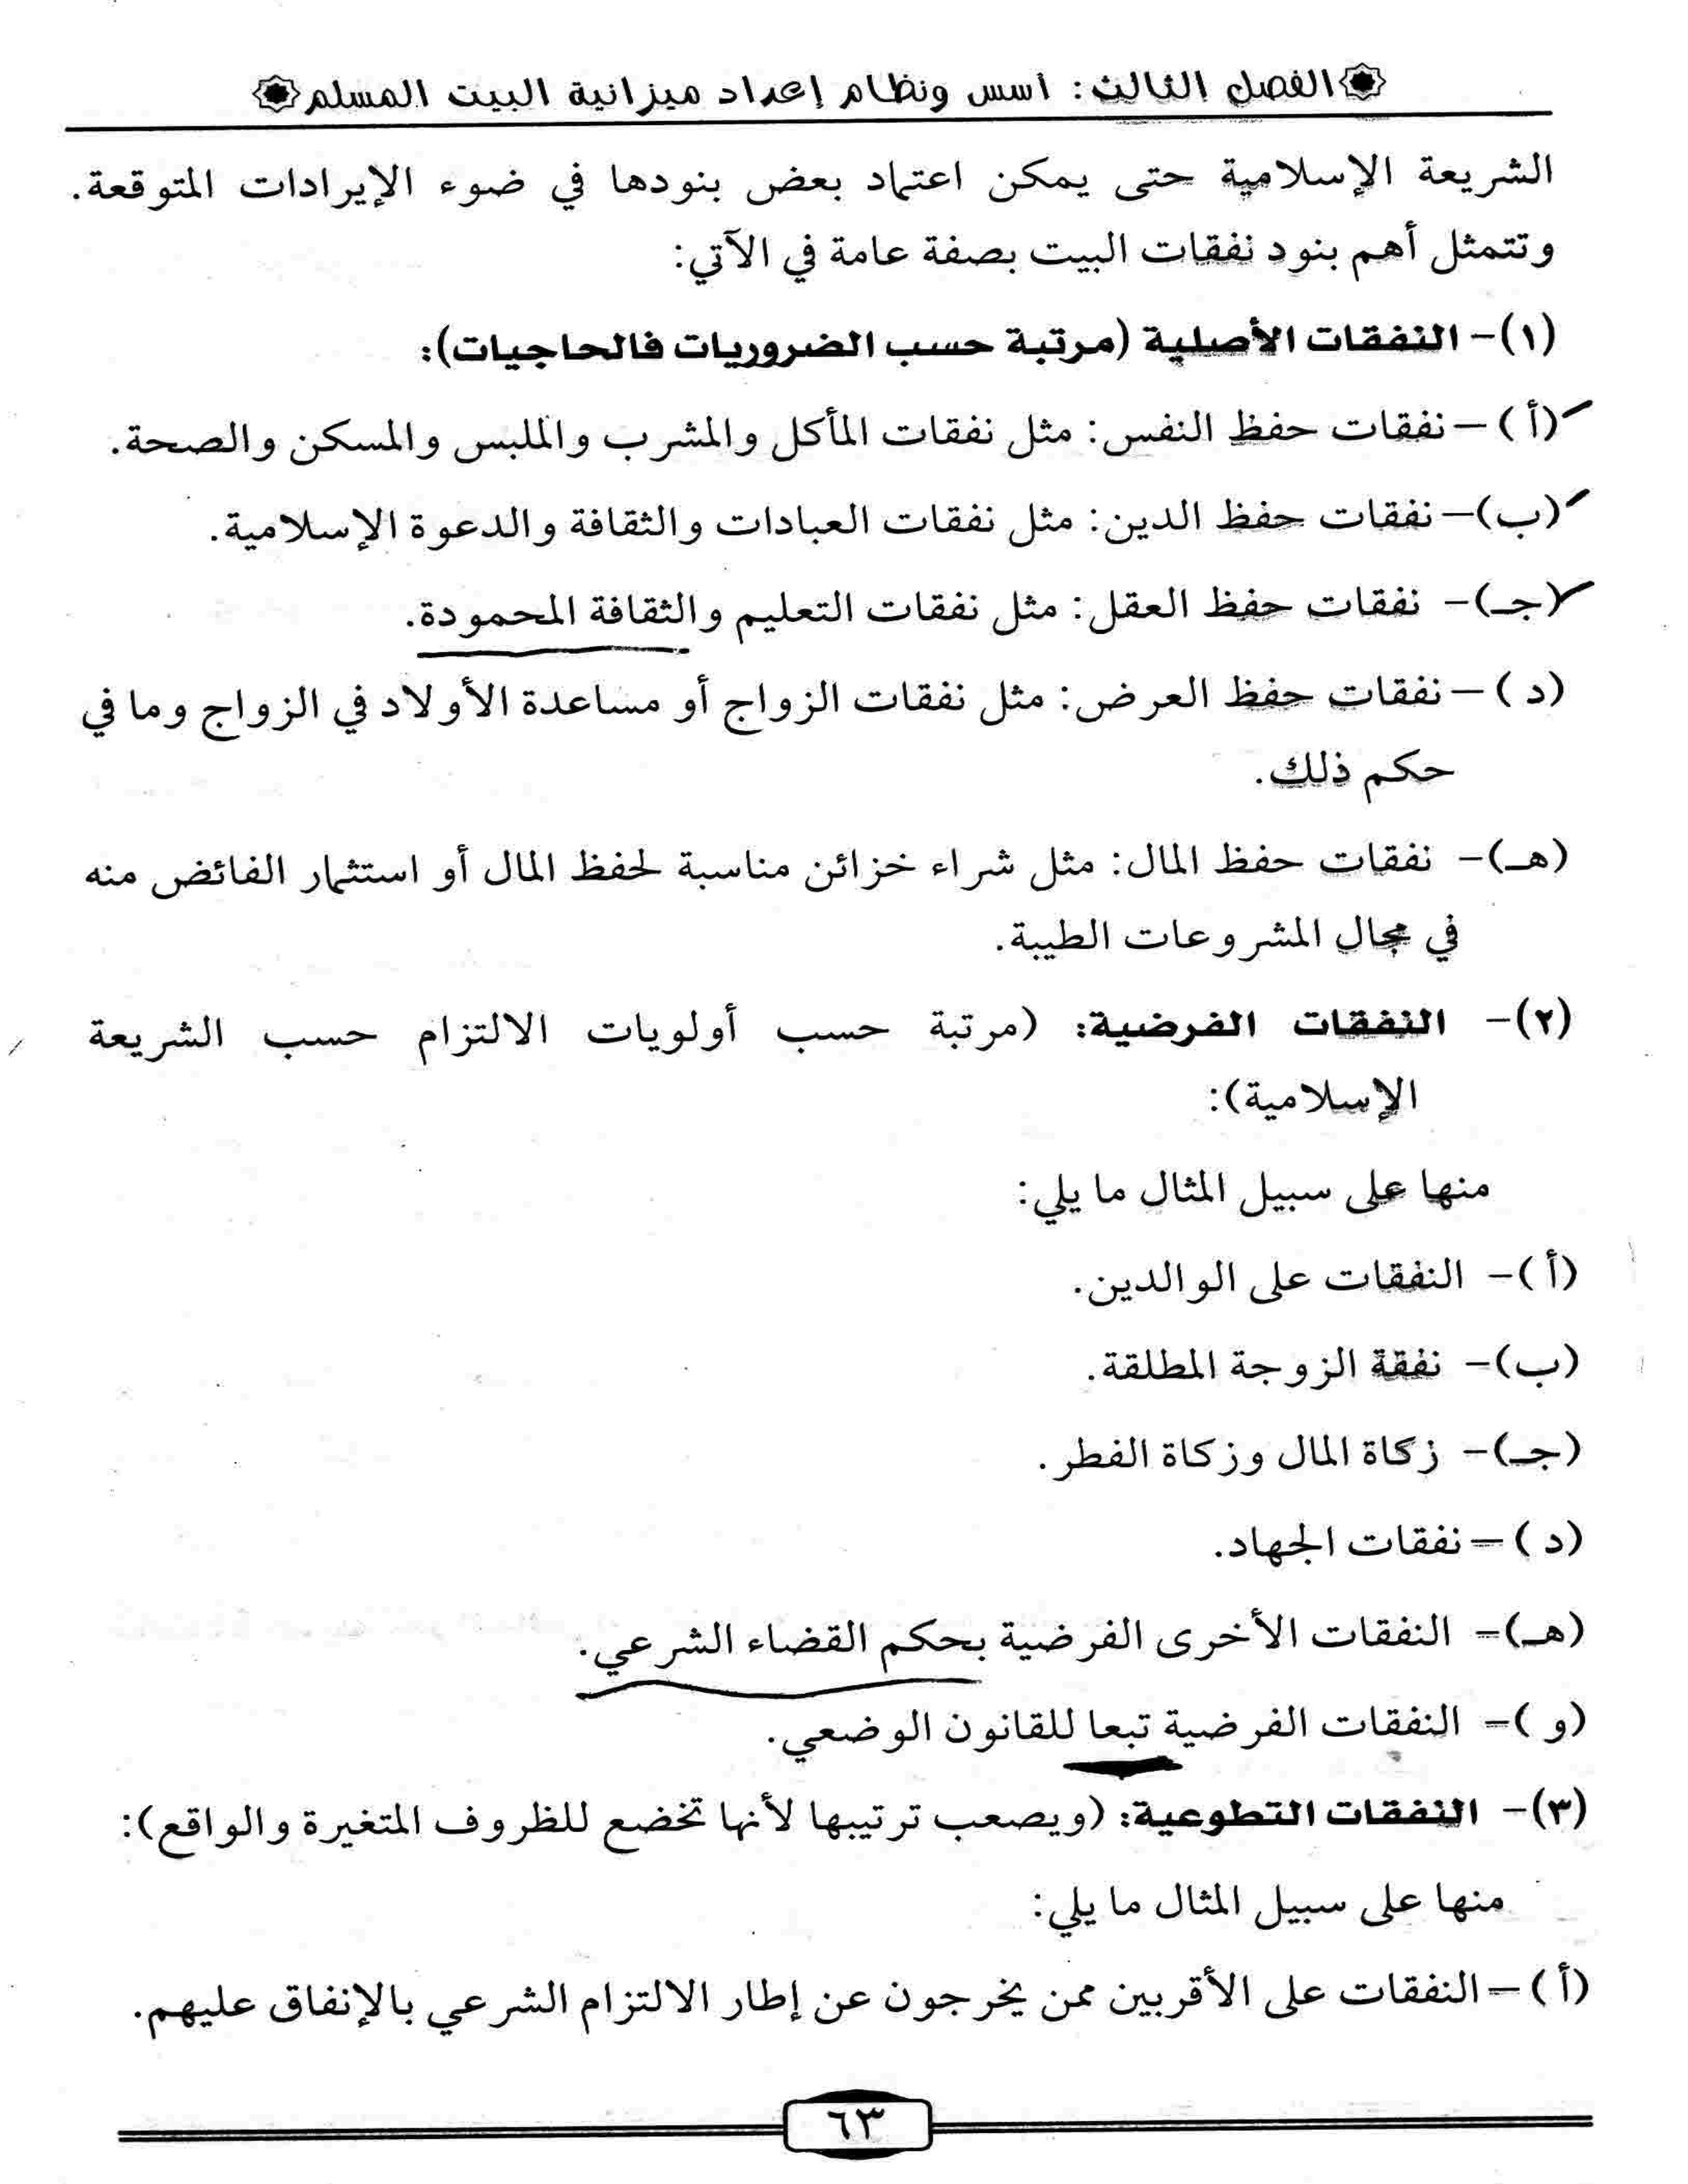 الفصل الثالث: أسس ونظام إعداد ميزانية البيت المسلم
الشريعة الإسلامية حتى يمكن اعتماد بعض بنودها في ضوء الإيرادات المتوقعة.
وتتمثل أهم بنود نفقات البيت بصفة عامة في الآتي:
(١)- النفقات الأصلية (مرتبة حسب الضروريات فالحاجيات):
(أ) – نفقات حفظ النفس: مثل نفقات المأكل والمشرب والملبس والمسكن والصحة.
(ب)– نفقات حفظ الدين: مثل نفقات العبادات والثقافة والدعوة الإسلامية.
(جـ)- نفقات حفظ العقل: مثل نفقات التعليم والثقافة المحمودة.
(د) – نفقات حفظ العرض: مثل نفقات الزواج أو مساعدة الأولاد في الزواج وما في
حكم ذلك.
(هـ)- نفقات حفظ المال: مثل شراء خزائن مناسبة لحفظ المال أو استثمار الفائض منه
في مجال المشروعات الطيبة.
(٢)- النفقات الفرضية: (مرتبة حسب أولويات الالتزام حسب الشريعة
الإسلامية):
منها على سبيل المثال ما يلي:
(أ)- النفقات على الوالدين.
(ب)- نفقة الزوجة المطلقة.
(جـ)- زكاة المال وزكاة الفطر.
(د) – نفقات الجهاد.
(هـ)- النفقات الأخرى الفرضية بحكم القضاء الشرعي.
(و)- النفقات الفرضية تبعا للقانون الوضعي.
(٣)- النفقات التطوعية: (ويصعب ترتيبها لأنها تخضع للظروف المتغيرة والواقع):
منها على سبيل المثال ما يلي:
(أ) – النفقات على الأقربين ممن يخرجون عن إطار الالتزام الشرعي بالإنفاق عليهم.
٦٣